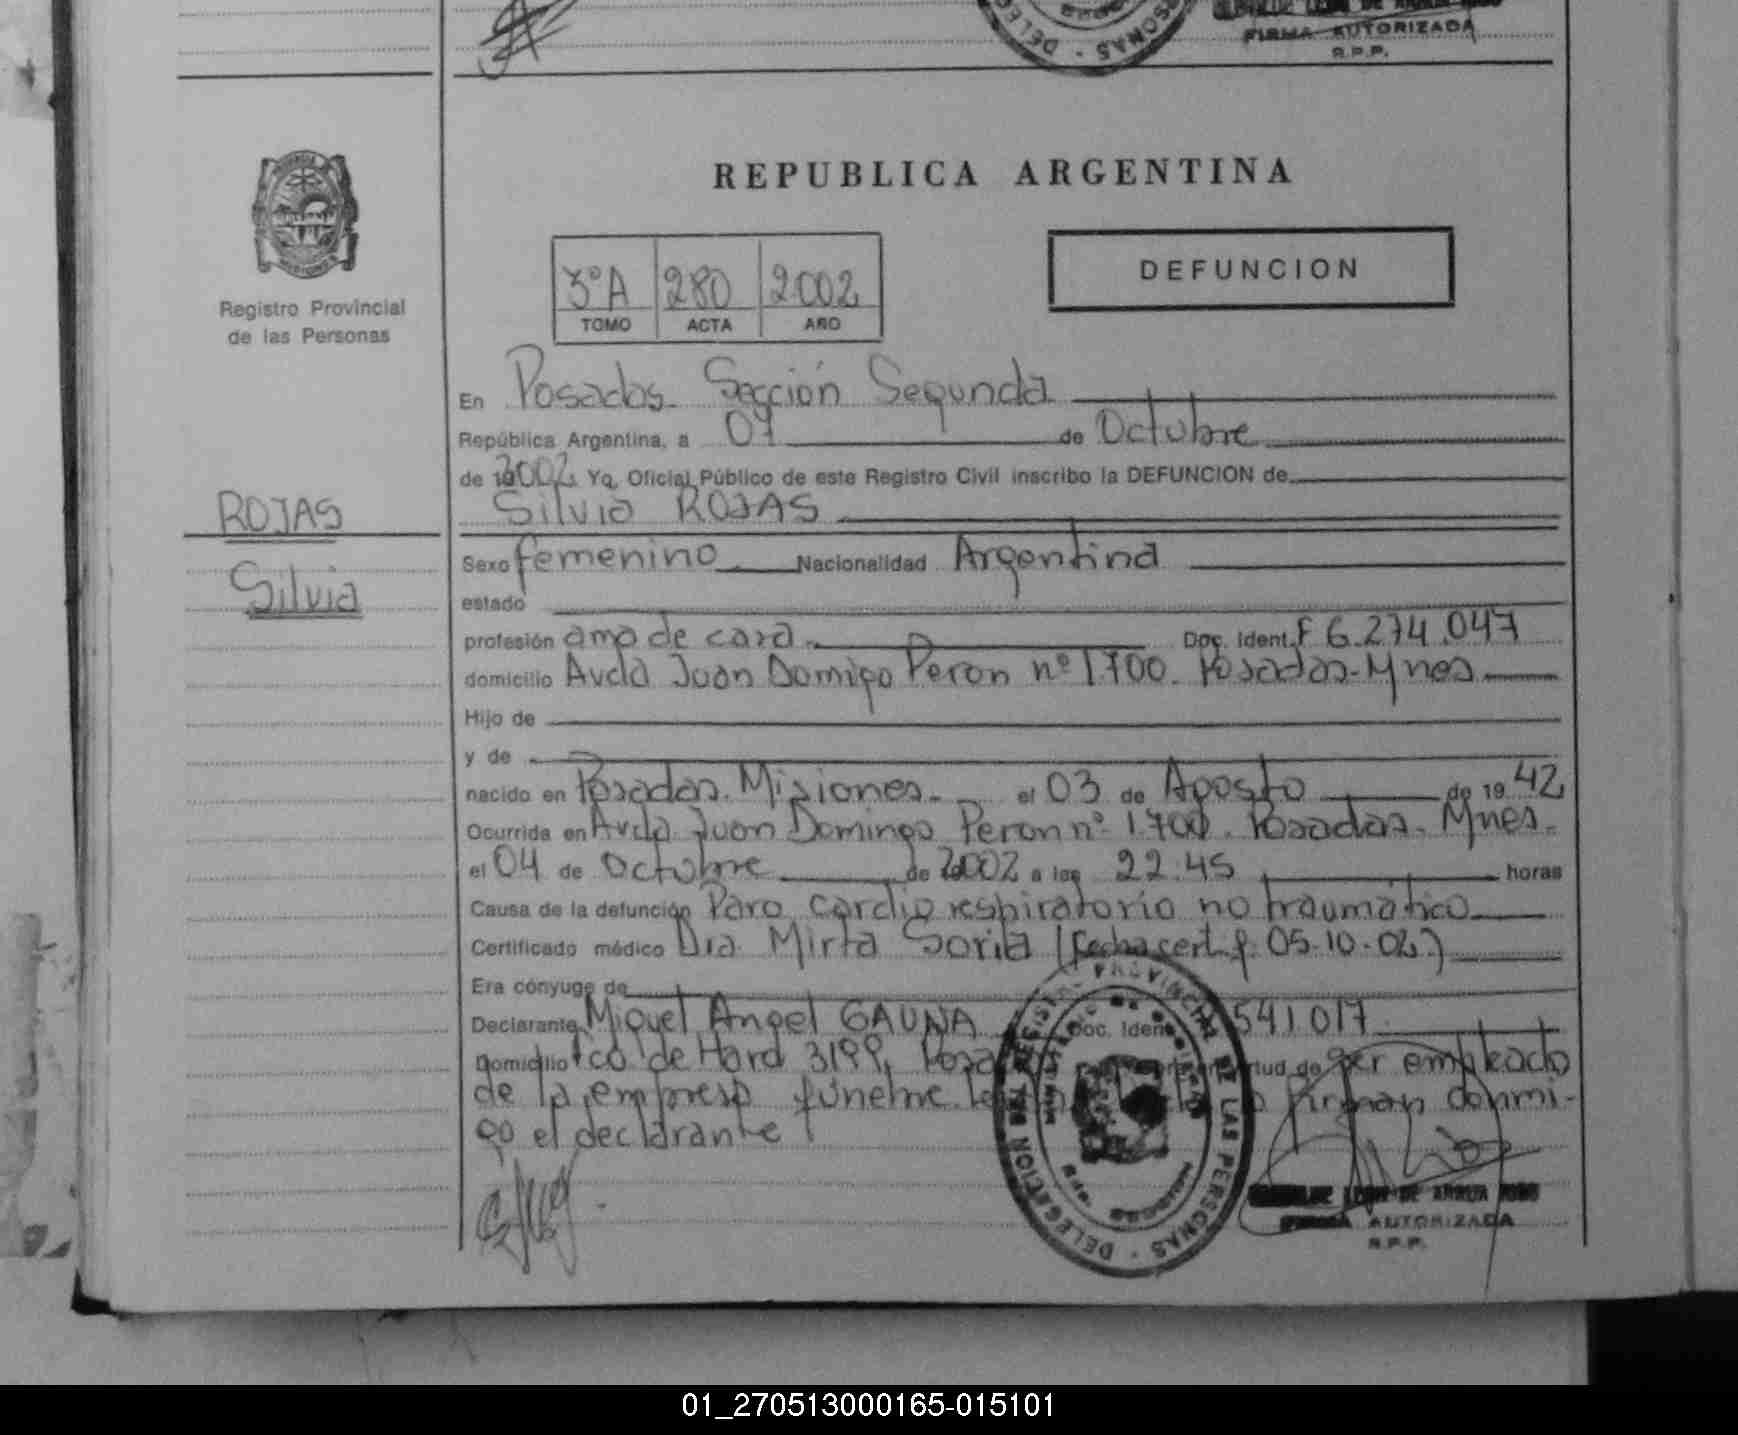 FIRMA AUTORIZADA
R.P.P.
REPUBLICA ARGENTINA
3ºA 280 2002
TOMO ACTA AÑO
DEFUNCION
Registro Provincial
de las Personas
En Posadas Sección Segunda
República Argentina, a 07 de Octubre
de 2002 Yo, Oficial Público de este Registro Civil inscribo la DEFUNCION de
ROJAS
Silvia ROJAS
Sexo femenino Nacionalidad Argentina
Silvia
estado
profesión ama de casa Doc. Ident. F 6.274.047
domicilio Avda Juan Domigo Peron nº 1.700. Posadas-Mnes
Hijo de
y de
nacido en Posadas. Misiones. el 03 de Agosto de 1942
Ocurrida en Avda Juan Domingo Peron nº 1.700. Posadas. Mnes.
el 04 de Octubre de 2002 a las 22.45 horas
Causa de la defunción Paro cardio respiratorio no traumático
Certificado médico Dra. Mirta (fecha cert. f. 05-10-02)
Era cónyuge de
Declarante Miguel Angel GAUNA Doc. Ident. 541017
Domicilio Fco de Haro 3199, ser empleado
de la empresa fúnebre firman conmi-
go el declarante
REGISTRO PROVINCIAL DE LAS PERSONAS - DELEGACION
FIRMA AUTORIZADA
R.P.P.
01_270513000165-015101